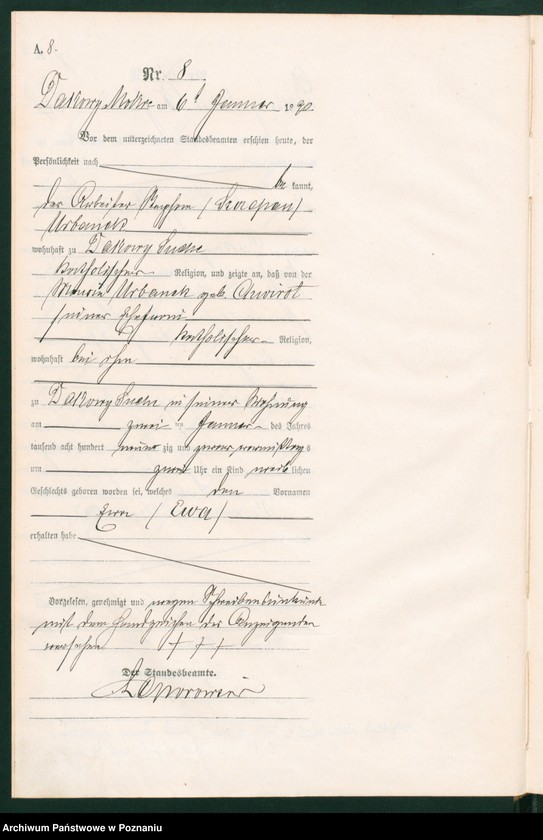 A. 8.
Nr. 8.
Dakowy Mokre am 6t Januar 1890
Vor dem unterzeichneten Standesbeamten erschien heute, der
Persönlichkeit nach
be kannt,
der Arbeiter Stephan / Szczepan /
Urbanek
wohnhaft zu Dakowy Suche
katholischer Religion, und zeigte an, daß von der
Maria Urbanek geb. Chwirot
seiner Ehefrau
katholischer Religion,
wohnhaft bei ihm
zu Dakowy Suche in seiner Wohnung
am zwei ten Januar des Jahres
tausend acht hundert neun zig und vormittags
um zwei Uhr ein Kind weib lichen
Geschlechts geboren worden sei, welches den Vornamen
Eva / Ewa /
erhalten habe
Vorgelesen, genehmigt und wegen Schreibensunkunde
mit dem Handzeichen des Anzeigenden
versehen + + +
Der Standesbeamte.
Archiwum Państwowe w Poznaniu